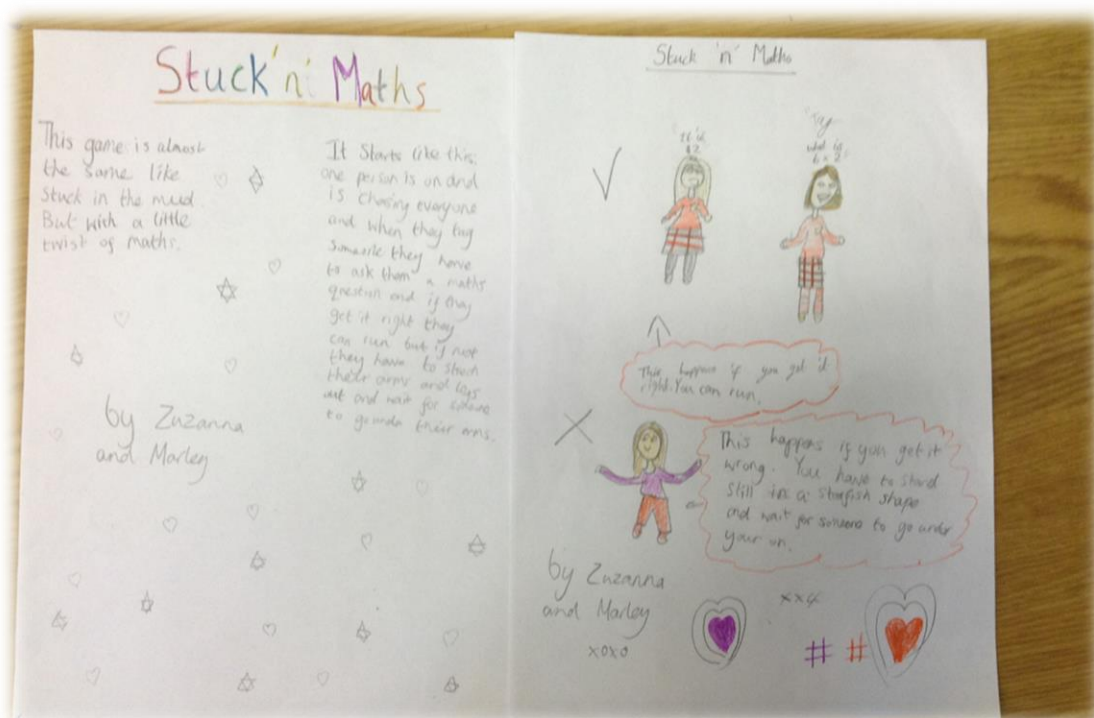 Stuck 'n' Maths
This game is almost
the same like
Stuck in the mud.
But with a little
twist of maths.
It Starts like this:
one person is on and
is chasing everyone
and when they tag
someone they have
to ask them a maths
question and if they
get it right they
can run but if not
they have to
their arms and legs
out and wait for
to their arms.
by Zuzanna
and Marley
Stuck 'n' Maths
it is
12
Tag
what is
6 x 2
This happens if you get it
right. You can run.
This happens if you get it
wrong. You have to stand
Still in a starfish shape
and wait for someone to go under
your
by Zuzanna
and Marley
xoxo
# #